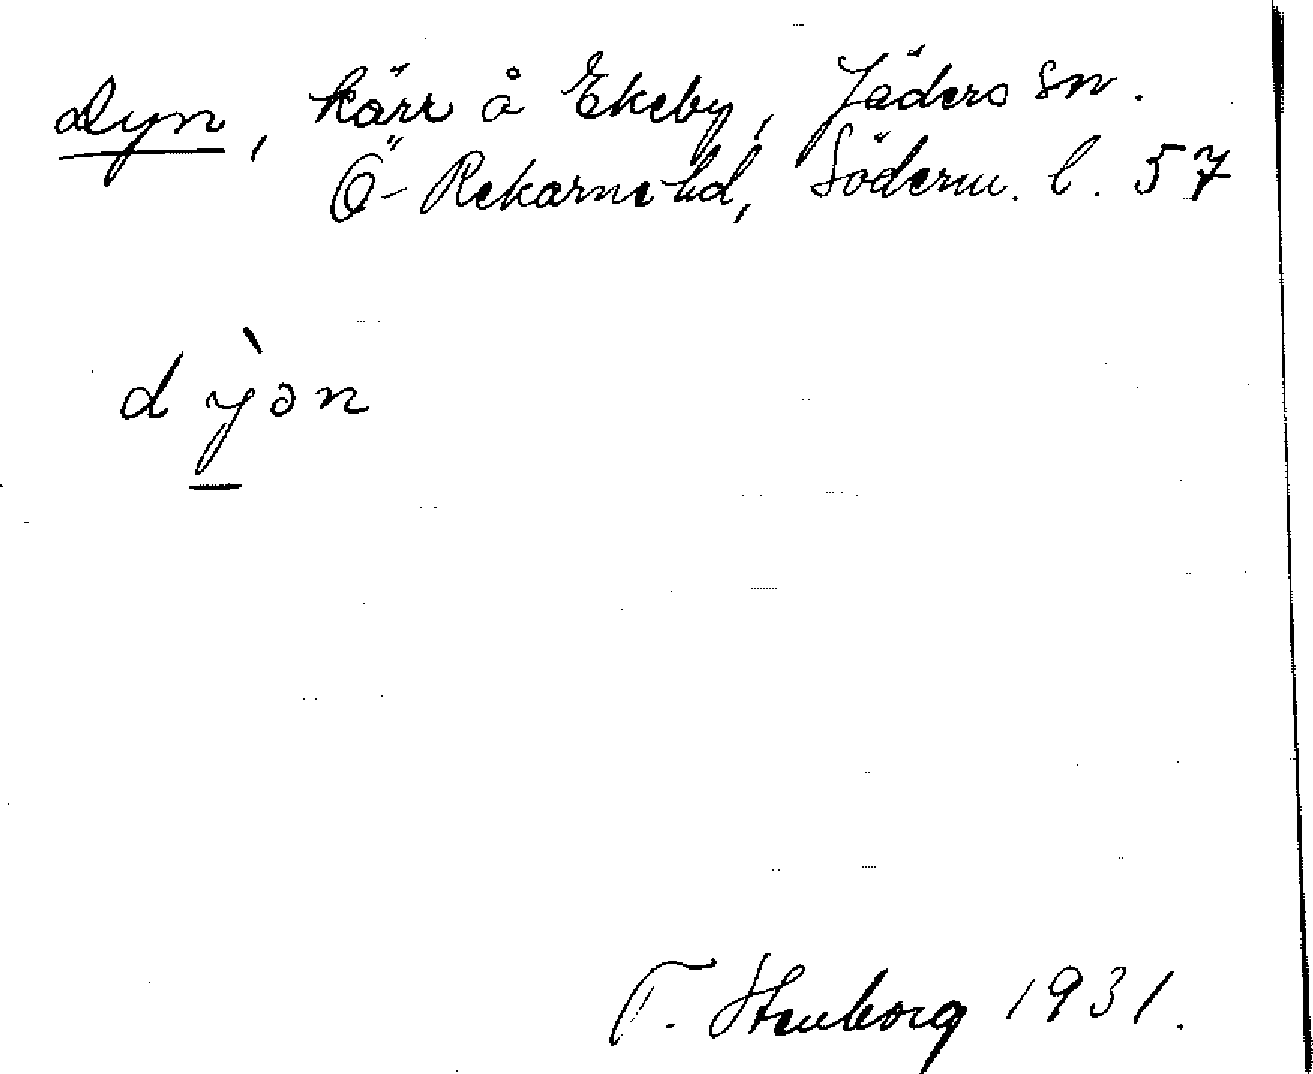 Dyn, kärr å Ekeby, Jäders sn.
Ö-Rekarne hd, Söderm. l. 57
dỳ̠ən
T. Stenborg 1931.